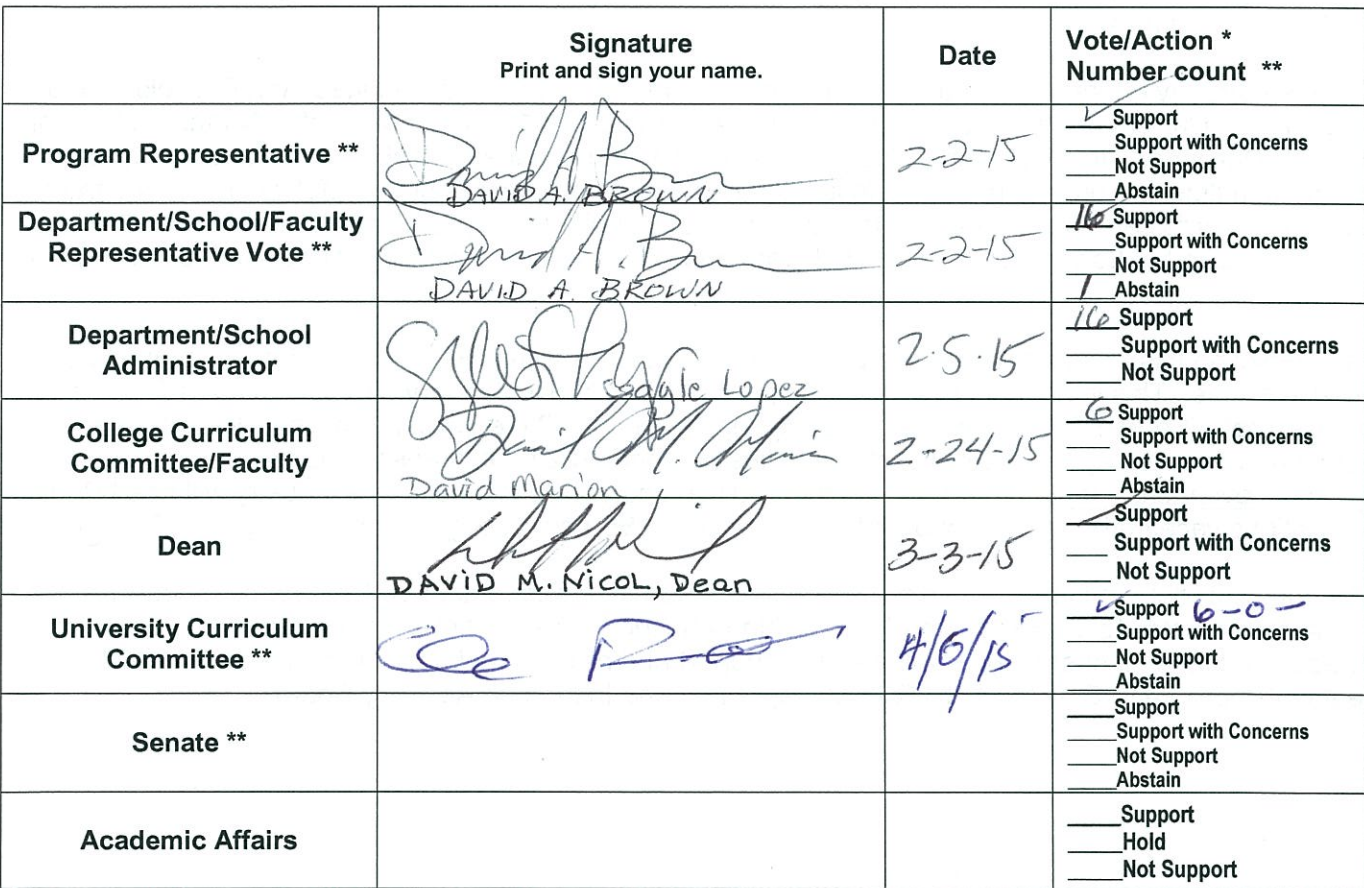 Signature
Print and sign your name.
Date
Vote/Action *
Number count **
Program Representative **
David A. Brown
DAVID A. BROWN
2-2-15
✓ Support
____Support with Concerns
____Not Support
____Abstain
Department/School/Faculty
Representative Vote **
David A. Brown
DAVID A. BROWN
2-2-15
16 Support
____Support with Concerns
____Not Support
1 Abstain
Department/School
Administrator
Gayle Lopez
2.5.15
16 Support
____Support with Concerns
____Not Support
College Curriculum
Committee/Faculty
David M. Marion
David Marion
2-24-15
6 Support
___ Support with Concerns
____ Not Support
____ Abstain
Dean
DAVID M. NICOL, Dean
3-3-15
✓ Support
___ Support with Concerns
___ Not Support
University Curriculum
Committee **
4/6/15
✓ Support 6-0-
____Support with Concerns
____Not Support
____Abstain
Senate **
____Support
____Support with Concerns
____Not Support
____Abstain
Academic Affairs
____Support
____Hold
____Not Support